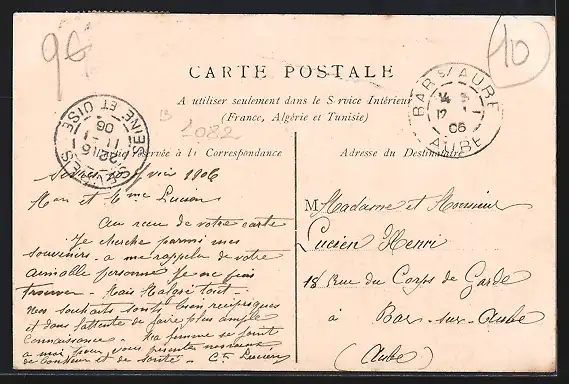 96
10
CARTE POSTALE
A utiliser seulement dans le Service Intérieur
(France, Algérie et Tunisie)
B
2082
réservée à la Correspondance
Adresse du Destinataire
SEINE ET OISE
11 - 1
06
BAR S/ AUBE
12 - 1
06
AUBE
1906
Mon et Mme Lucien
Au reçu de votre carte
Je cherche parmi mes
souvenirs a me rappeler de votre
aimable personne Je ne puis
trouver. Mais Malgré tout
Nos souhaits sont bien réciproques
et dans l'attente de faire plus ample
connaissance. Ma femme se joint
a moi pour vous présenter nos vœux
de bonheur et de santé.
M Madame et Monsieur
Lucien Henri
18 Rue du Corps de Garde
à Bar-sur-Aube
(Aube)